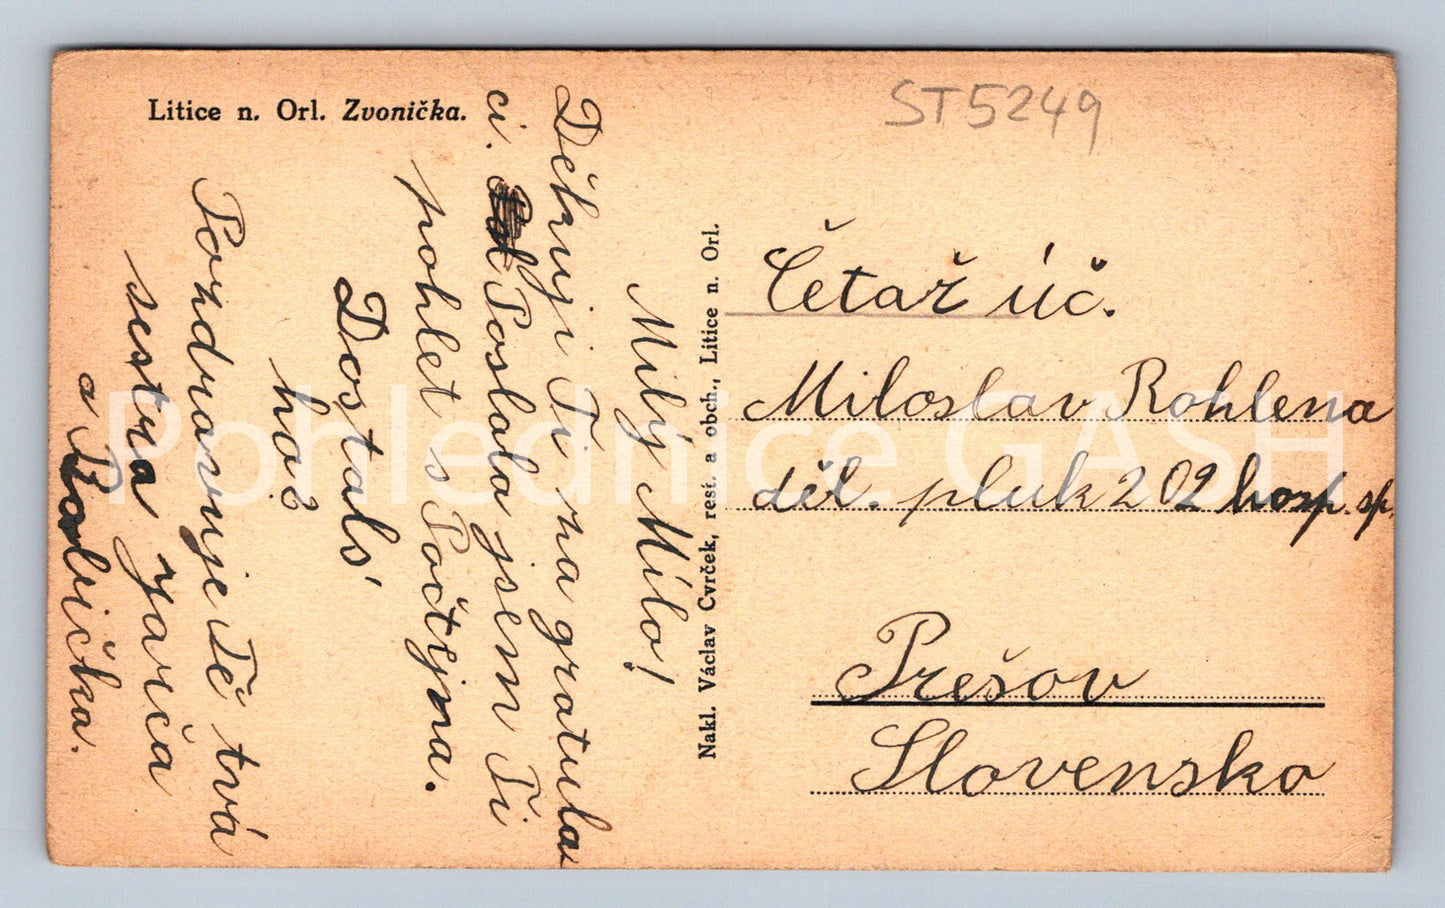 Litice n. Orl. Zvonička.
ST5249
Milý Mílo!
Děkuji Ti za gratula
ci. Poslala jsem Ti
pohlet s Počtýna.
Dostals'
ho?
Pozdravuje Tě tvá
sestra Jarča
a Babička.
Nakl. Václav Cvrček, rest. a obch., Litice n. Orl.
Četař úč.
Miloslav Rohlena
děl. pluk 202 hosp. sp.
Prešov
Slovensko
Pohlednice GASH